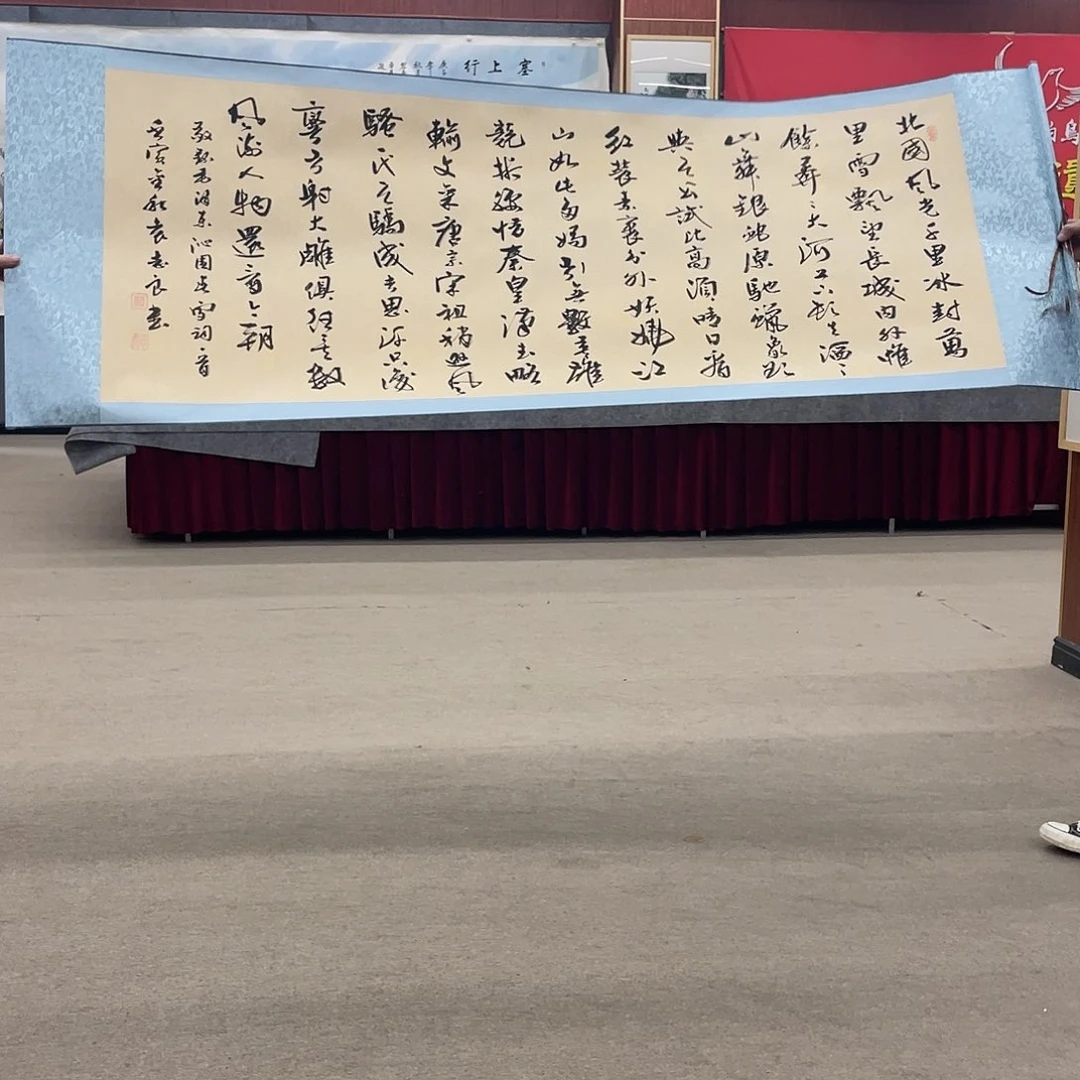 北國風光千里冰封萬
里雪飄望長城内外惟
餘莽〻大河上下頓失滔〻
山舞銀蛇原馳蠟象欲
與天公試比高須晴日看
紅裝素裹分外妖嬈江
山如此多嬌引無數英雄
競折腰惜秦皇漢武略
輸文采唐宗宋祖稍遜風
騷一代天驕成吉思汗只識
彎弓射大雕俱往矣數
風流人物還看今朝
敬録毛澤東沁園春雪詞一首
金秋袁志良書
塞上行